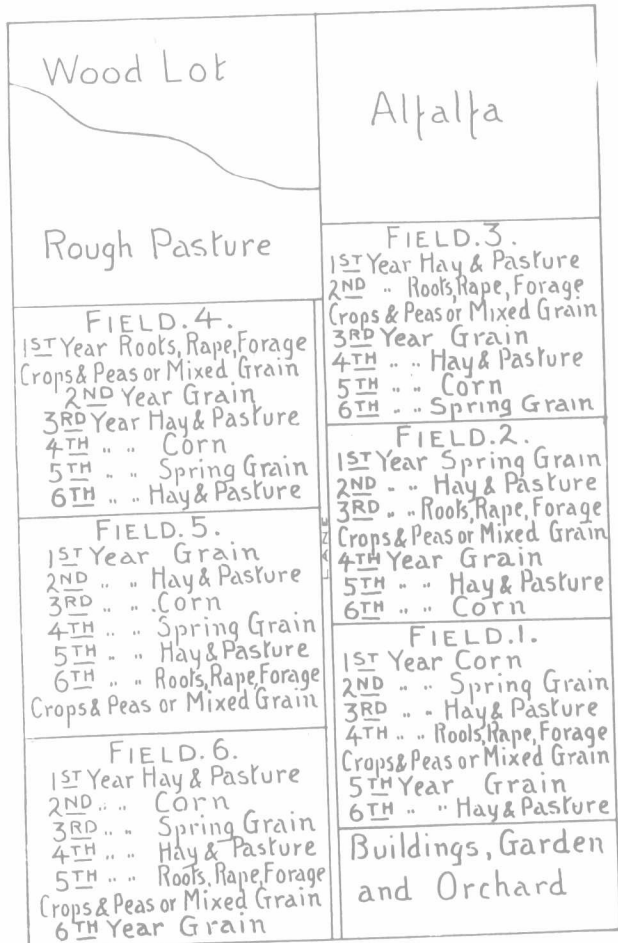 Wood Lot
Rough Pasture
FIELD.4.
1ST Year Roots, Rape, Forage
Crops & Peas or Mixed Grain
2ND Year Grain
3RD Year Hay & Pasture
4TH " " Corn
5TH " " Spring Grain
6TH " " Hay & Pasture
FIELD.5.
1ST Year Grain
2ND " " Hay & Pasture
3RD " " Corn
4TH " " Spring Grain
5TH " " Hay & Pasture
6TH " " Roots, Rape, Forage
Crops & Peas or Mixed Grain
FIELD.6.
1ST Year Hay & Pasture
2ND " " Corn
3RD " " Spring Grain
4TH " " Hay & Pasture
5TH " " Roots, Rape, Forage
Crops & Peas or Mixed Grain
6TH Year Grain
LANE
Alfalfa
FIELD.3.
1ST Year Hay & Pasture
2ND " Roots, Rape, Forage
Crops & Peas or Mixed Grain
3RD Year Grain
4TH " " Hay & Pasture
5TH " " Corn
6TH " " Spring Grain
FIELD.2.
1ST Year Spring Grain
2ND " " Hay & Pasture
3RD " " Roots, Rape, Forage
Crops & Peas or Mixed Grain
4TH Year Grain
5TH " " Hay & Pasture
6TH " " Corn
FIELD.1.
1ST Year Corn
2ND " " Spring Grain
3RD " " Hay & Pasture
4TH " " Roots, Rape, Forage
Crops & Peas or Mixed Grain
5TH Year Grain
6TH " " Hay & Pasture
Buildings, Garden
and Orchard